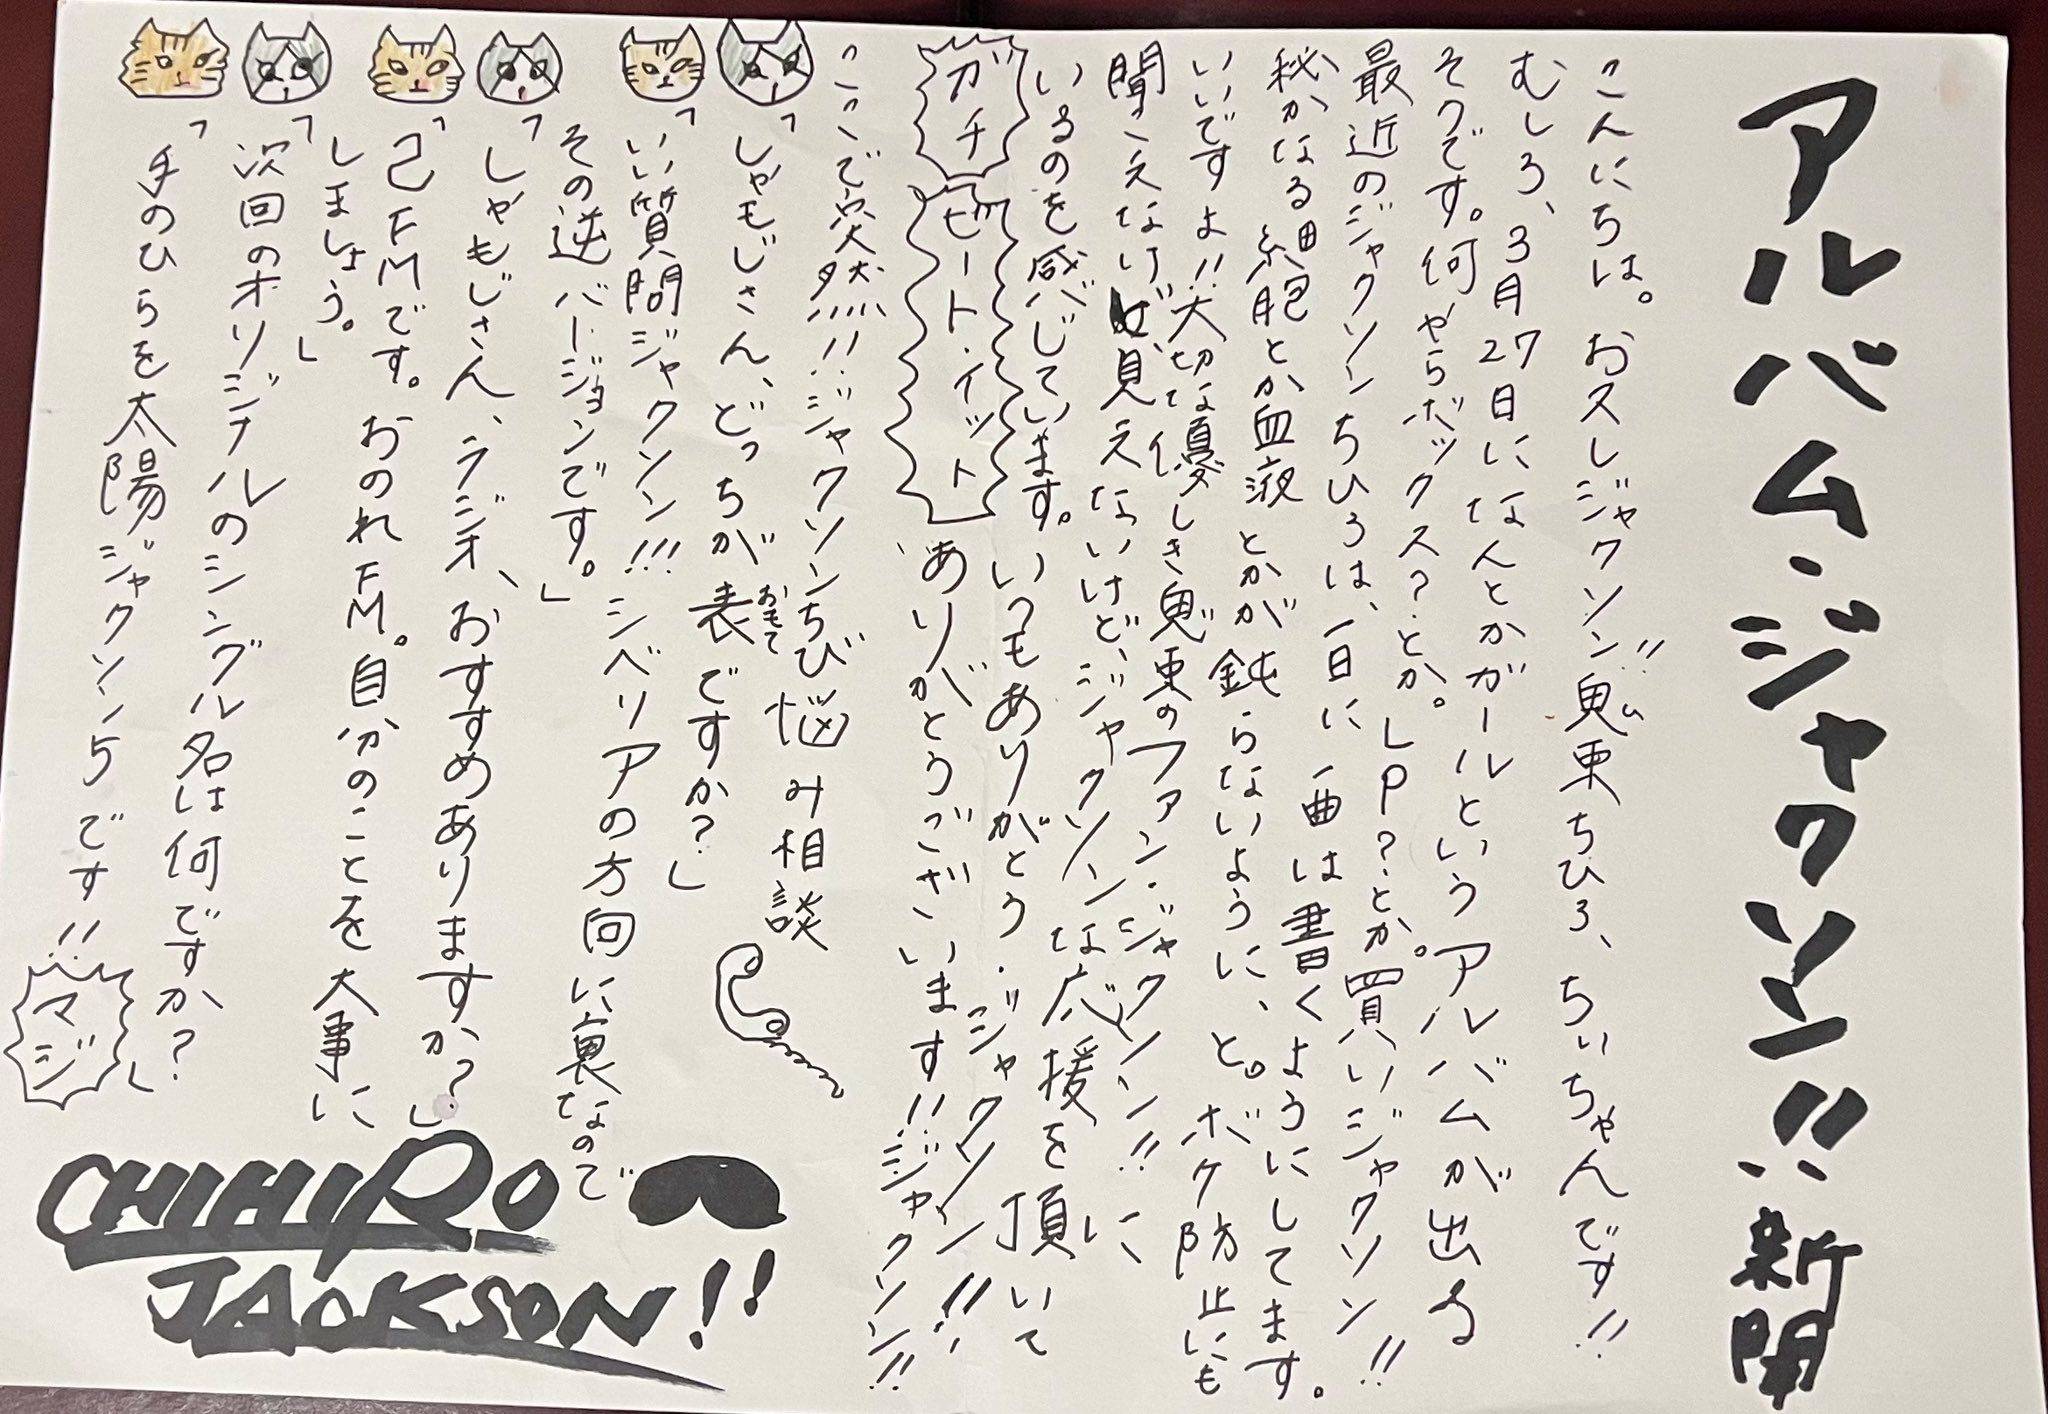 アルバム・ジャクソン!!新聞
こんにちは。お久しジャクソン!!鬼束ちひろ、ちぃちゃんです!!
むしろ、3月27日になんとかガールというアルバムが出る
そうです。何やらボックス?とか。LP?とか。
最近のジャクソンちひろは、一日に一曲は書くようにしてます。
秘かなる細胞とか血液とかが鈍らないように、と。ボケ防止にも
いいですよ!!大切な優しき鬼束のファン・ジャクソン!!に
聞こえなけど、見えないけど、ジャクソンな応援を頂いて
いるのを感じています。いつもありがとう・ジャクソン!!
ガチ ビート・イット ありがとうございます!!ジャクソン!!
ここで突然!!ジャクソンちび悩み相談
「しゃもじさん、どっちが表ですか?」
おもて
「いい質問ジャクソン!!!シベリアの方向に裏なので
その逆バージョンです。」
「しゃもじさん、ラジオ、おすすめありますか?」
「己FMです。おのれFM。自分のことを大事に
しましょう。」
「次回のオリジナルのシングル名は何ですか?」
「手のひらを太陽ジャクソン5です!!」
マジ
CHIHIRO
JACKSON!!